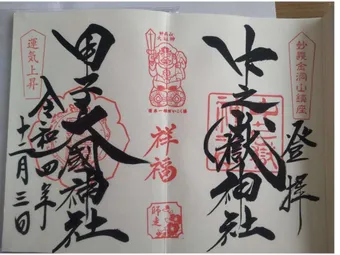 妙義金洞山鎮座
登拝
中之嶽神社
祥福
師走
甲子大國神社
運気上昇
令和四年
十二月三日